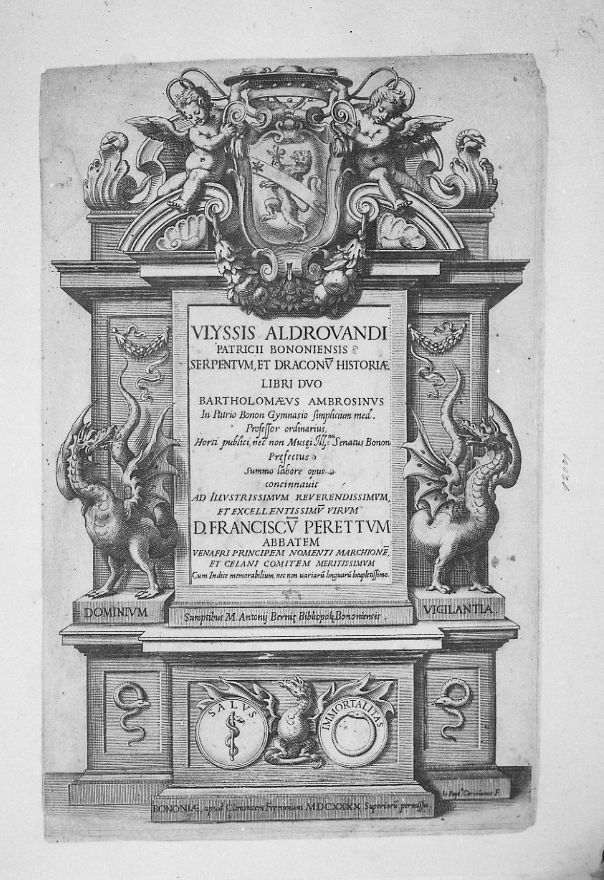 VLYSSIS ALDROVANDI
PATRICII BONONIENSIS
SERPENTVM, ET DRACONV̄ HISTORIÆ
LIBRI DVO
BARTHOLOMÆVS AMBROSINVS
In Patrio Bonon Gymnasio simplicium med.
Professor ordinarius,
Horti publici, nec non Musęi Ill.mi Senatus Bonon
Pręfectus
Summo labore opus
concinnauit
AD ILLVSTRISSIMVM REVERENDISSIMVM,
ET EXCELLENTISSIMV̄ VIRVM
D. FRANCISCV̄ PERETTVM
ABBATEM
VENAFRI PRINCIPEM NOMENTI MARCHIONĒ,
ET CELANI COMITEM MERITISSIMVM
Cum Indice memorabilium, nec non uariarū linguarū locupletissimo.
DOMINIVM
VIGILANTIA
Sumptibus M. Antonij Bernię Bibliopolę Bononiensis.
SALVS
IMMORTALITAS
BONONIÆ, apud Clementem Ferronium MDCXXXX Superiorū permissu
Io Bapt.a Coriolanus F.